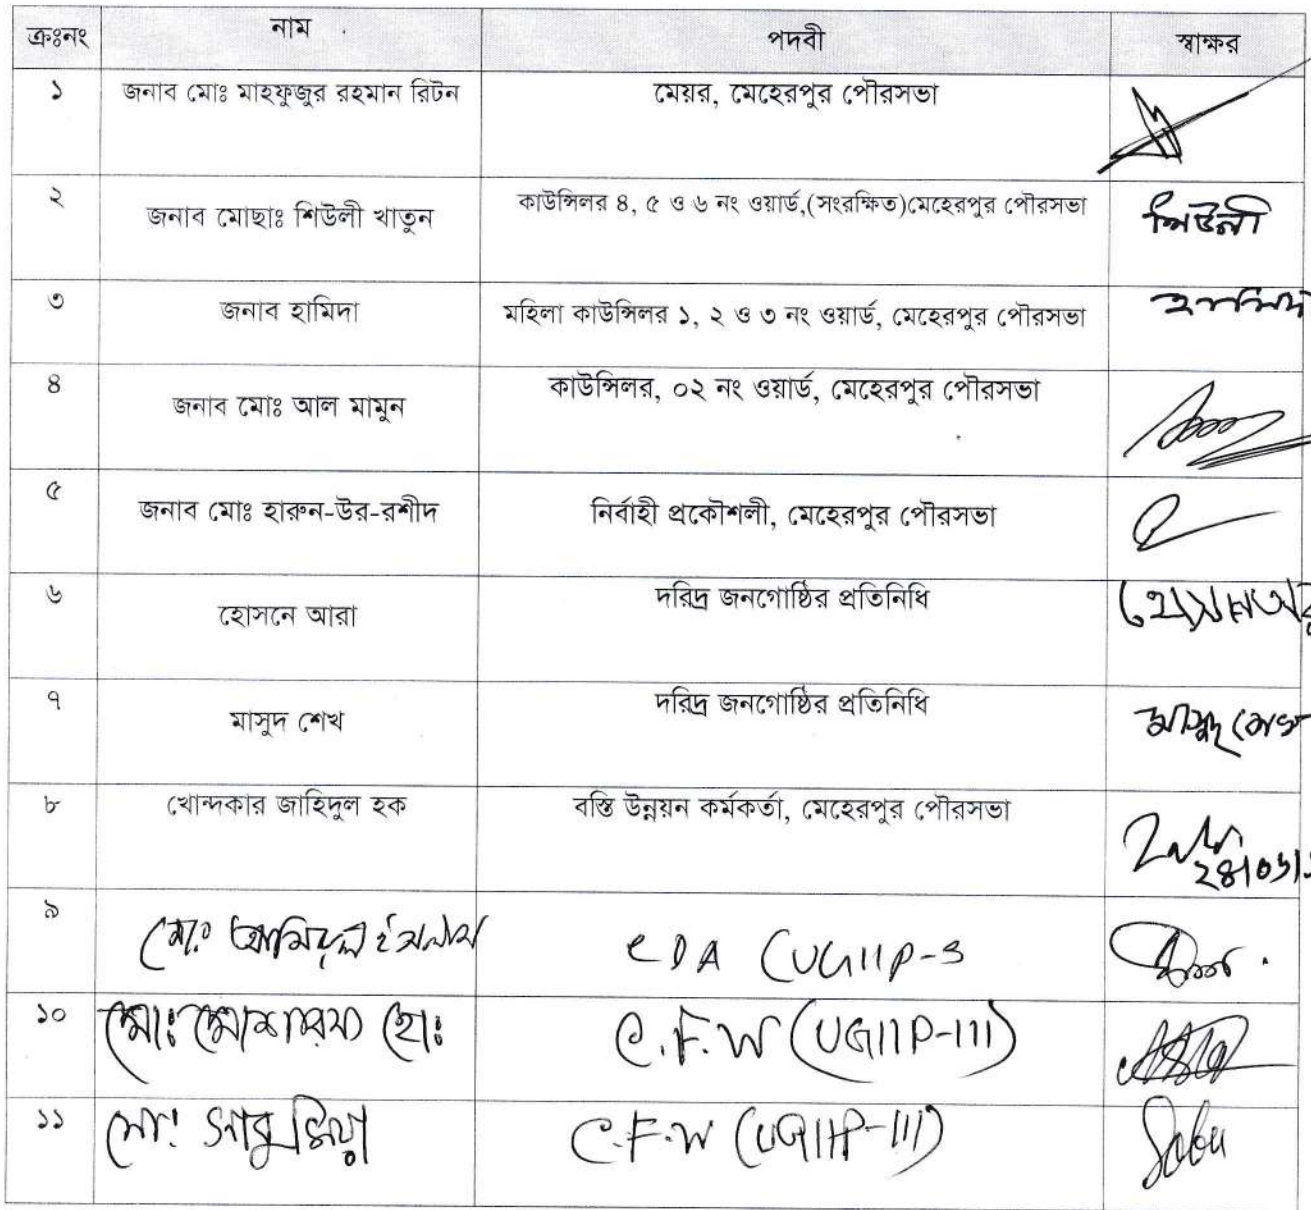 ক্রঃনং নাম পদবী স্বাক্ষর
১ জনাব মোঃ মাহফুজুর রহমান রিটন মেয়র, মেহেরপুর পৌরসভা
২ জনাব মোছাঃ শিউলী খাতুন কাউন্সিলর ৪, ৫ ও ৬ নং ওয়ার্ড,(সংরক্ষিত)মেহেরপুর পৌরসভা শিউলী
৩ জনাব হামিদা মহিলা কাউন্সিলর ১, ২ ও ৩ নং ওয়ার্ড, মেহেরপুর পৌরসভা
৪ জনাব মোঃ আল মামুন কাউন্সিলর, ০২ নং ওয়ার্ড, মেহেরপুর পৌরসভা
৫ জনাব মোঃ হারুন-উর-রশীদ নির্বাহী প্রকৌশলী, মেহেরপুর পৌরসভা
৬ হোসনে আরা দরিদ্র জনগোষ্ঠির প্রতিনিধি
৭ মাসুদ শেখ দরিদ্র জনগোষ্ঠির প্রতিনিধি মাসুদ শেখ
৮ খোন্দকার জাহিদুল হক বস্তি উন্নয়ন কর্মকর্তা, মেহেরপুর পৌরসভা
৯ মোঃ ইসলাম CDA (UGIIP-3
১০ মোঃ মোশাররফ হোঃ C.F.W (UGIIP-III)
১১ মো: সাবু মিয়া C.F.W (UGIIP-III) Sabu